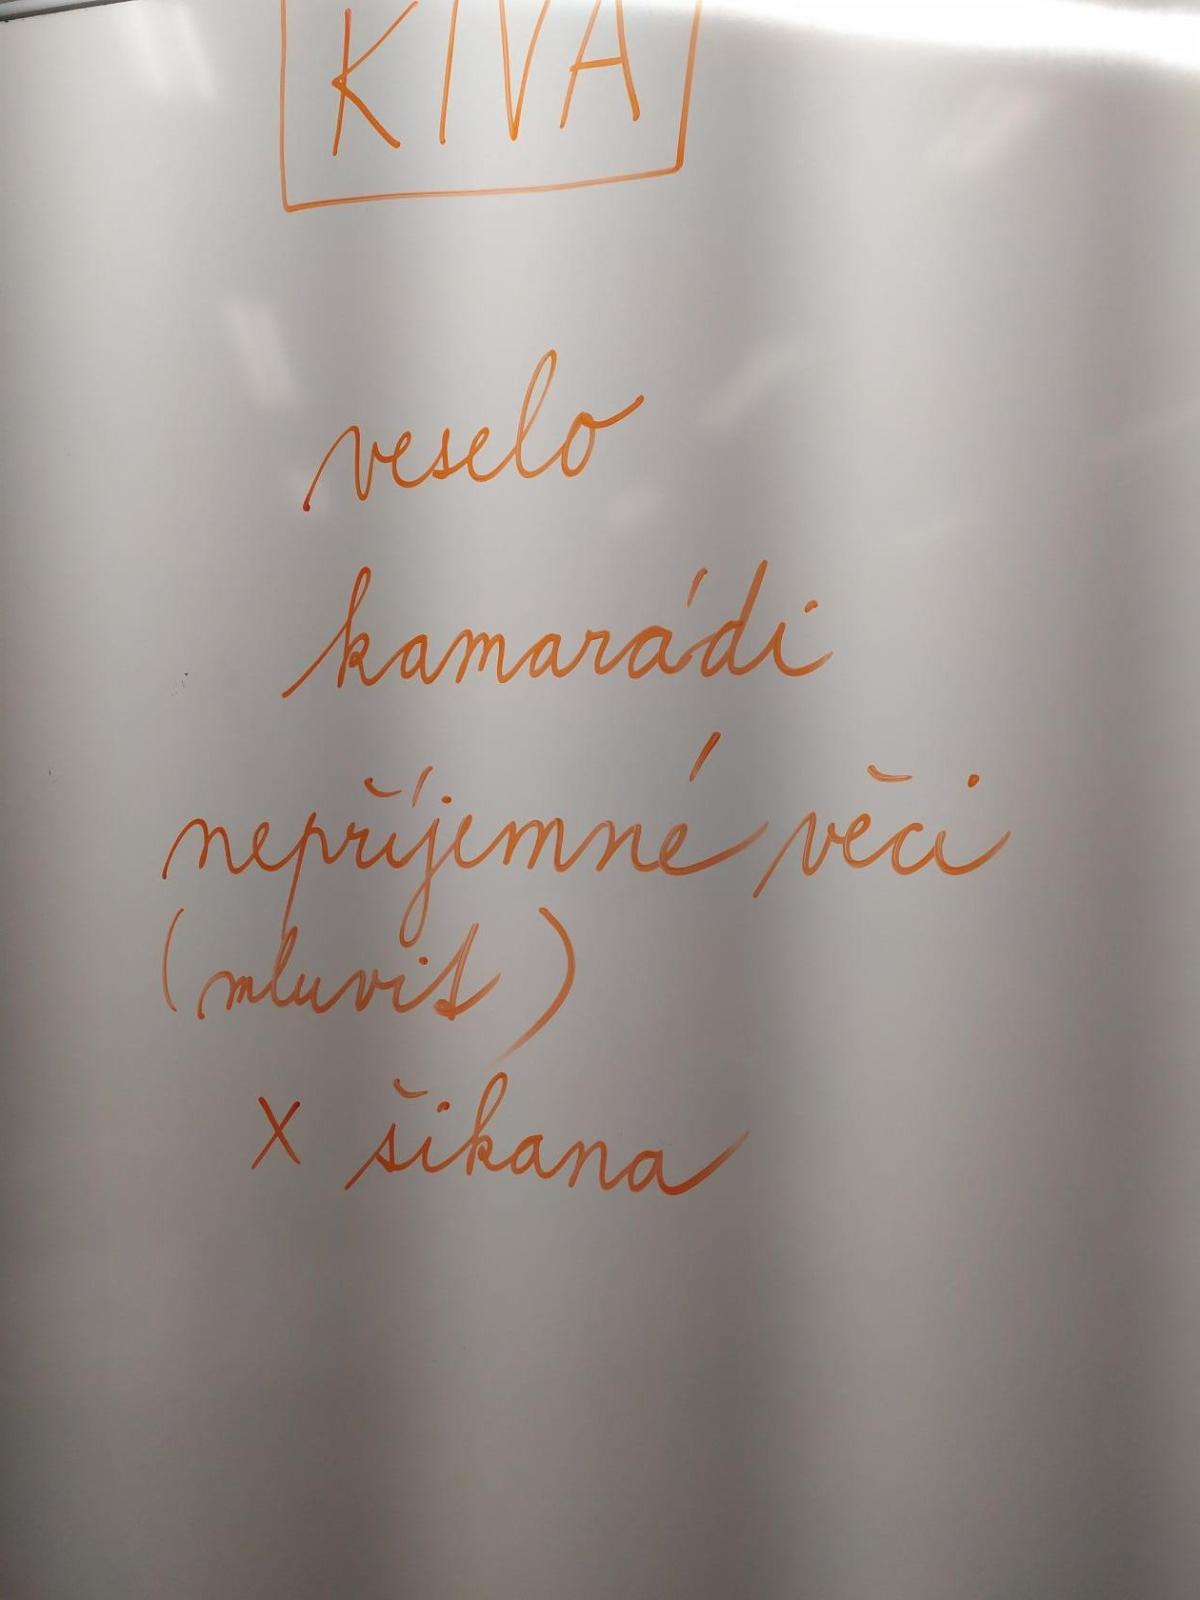 KIVA
veselo
kamarádi
nepříjemné věci
(mluvit)
x šikana